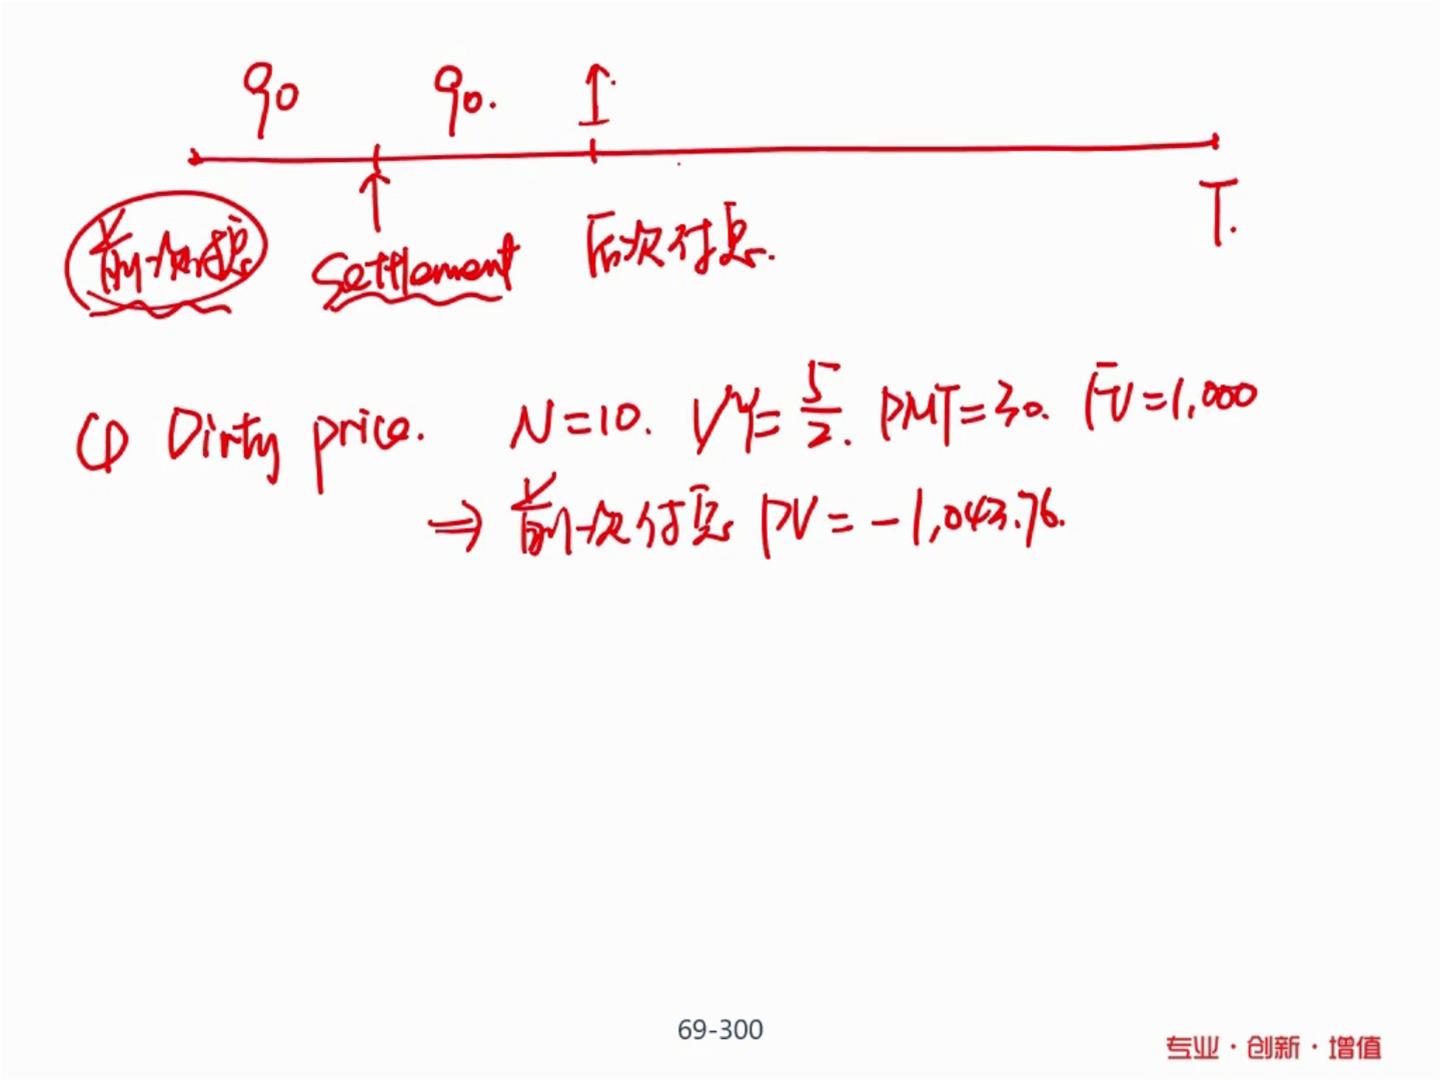 90 90.
前次付息 Settlement 后次付息. T.
① Dirty price. N=10. I/Y=5/2. PMT=30. FV=1,000
⇒ 前次付息 PV=-1,043.76.
69-300
专业·创新·增值